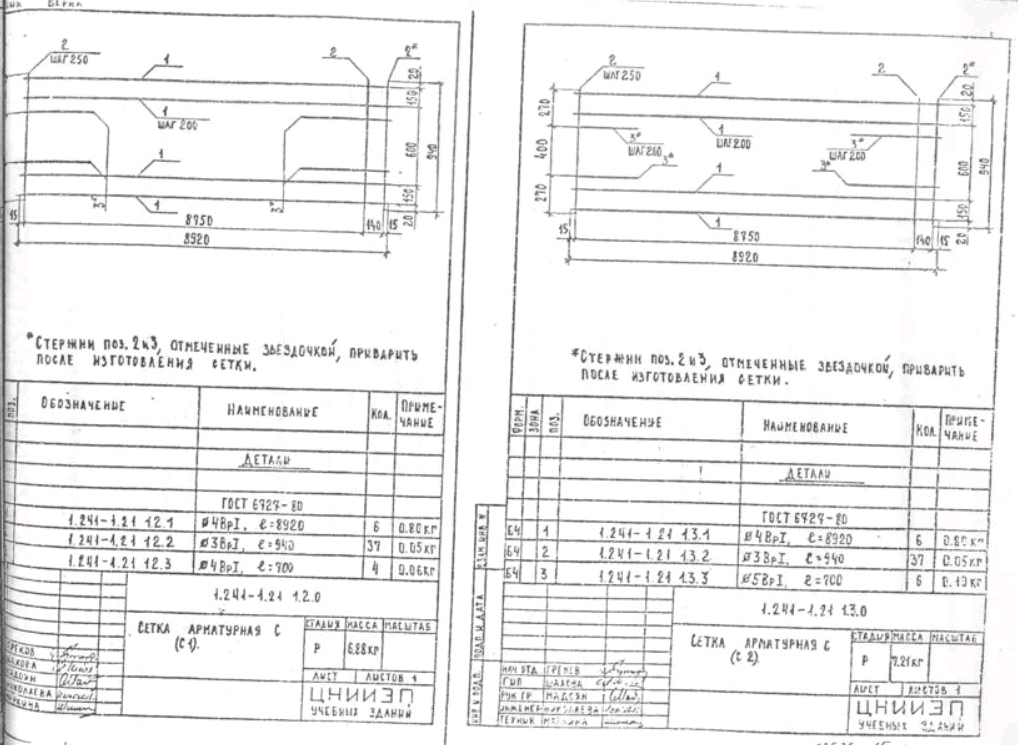 2
ШАГ 250
1
2
2*
20
150
1
ШАГ 200
600
940
1
150
3*
1
3*
20
15
8750
140
15
8920
*СТЕРЖНИ ПОЗ. 2 и 3, ОТМЕЧЕННЫЕ ЗВЕЗДОЧКОЙ, ПРИВАРИТЬ
ПОСЛЕ ИЗГОТОВЛЕНИЯ СЕТКИ.
ПОЗ. ОБОЗНАЧЕНИЕ НАИМЕНОВАНИЕ КОЛ. ПРИМЕ-
ЧАНИЕ
ДЕТАЛИ
ГОСТ 6727-80
1.241-1.21 12.1 ø4ВрI, ℓ=8920 6 0.80кг
1.241-1.21 12.2 ø3ВрI, ℓ=940 37 0.05кг
1.241-1.21 12.3 ø4ВрI, ℓ=700 4 0.06кг
1.241-1.21 1.2.0
СЕТКА АРМАТУРНАЯ С
(С1).
СТАДИЯ МАССА МАСШТАБ
Р 6,88кг
ЛИСТ ЛИСТОВ 1
ЦНИИЭП
УЧЕБНЫХ ЗДАНИЙ
2
ШАГ 250
1
2
2*
20
270
150
1
ШАГ 200
3*
ШАГ 200
3*
ШАГ 200
400
600
940
3*
1
3*
270
150
1
20
15
8750
140
15
8920
*СТЕРЖНИ ПОЗ. 2 и 3, ОТМЕЧЕННЫЕ ЗВЕЗДОЧКОЙ, ПРИВАРИТЬ
ПОСЛЕ ИЗГОТОВЛЕНИЯ СЕТКИ.
ФОРМ. ЗОНА ПОЗ. ОБОЗНАЧЕНИЕ НАИМЕНОВАНИЕ КОЛ. ПРИМЕ-
ЧАНИЕ
ДЕТАЛИ
ГОСТ 6727-80
Б4 1 1.241-1.21 13.1 ø4ВрI, ℓ=8920 6 0.80кг
Б4 2 1.241-1.21 13.2 ø3ВрI, ℓ=940 37 0.05кг
Б4 3 1.241-1.21 13.3 ø5ВрI, ℓ=700 6 0.10кг
ВЗАМ ИНВ N
ПОДП И ДАТА
1.241-1.21 13.0
СЕТКА АРМАТУРНАЯ С
(С 2)
СТАДИЯ МАССА МАСШТАБ
Р 7.21кг
ЛИСТ ЛИСТОВ 1
ЦНИИЭП
УЧЕБНЫХ ЗДАНИЙ
НАЧ ОТД
ГИП
РУК ГР
ИНЖЕНЕР НИКОЛАЕВА
ТЕХНИК